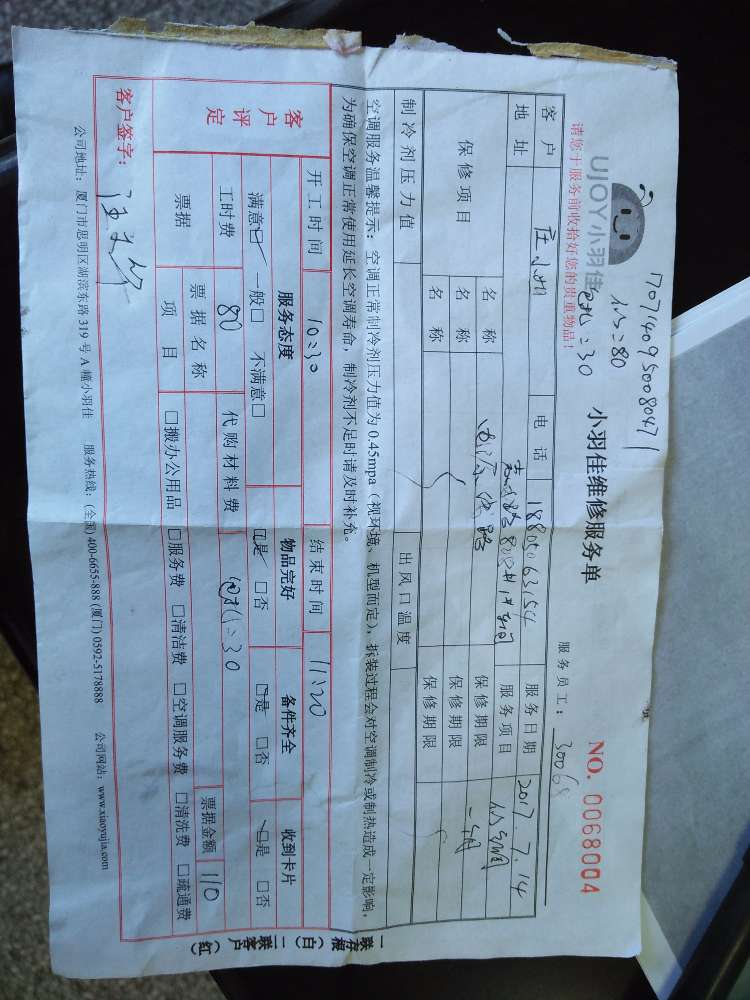 17071409500 80471
UJOY 小羽佳
小羽佳维修服务单
NO. 0068004
:80
:30
请您于服务前收拾好您的贵重物品!
服务员工: 30068
客户 庄小姐 电话 18805063154 服务日期 2017.7.14
地址 服务项目
保修项目 名称 保修期限 一个月
名称 保修期限
名称 保修期限
制冷剂压力值 出风口温度
空调服务温馨提示: 空调正常制冷剂压力值为 0.45mpa (视环境、机型而定), 拆装过程会对空调制冷或制热造成一定影响,
为确保空调正常使用延长空调寿命, 制冷剂不足时请及时补充。
开工时间 10:30 结束时间 11:20
客户评定 服务态度 物品完好 备件齐全 收到卡片
满意☑ 一般□ 不满意□ ☑是 □否 □是 □否 □是 □否
工时费 80 代购材料费 :30 票据金额 110
票据 票据名称
项目 □搬办公用品 □服务费 □清洁费 □空调服务费 □清洗费 □疏通费
客户签字:
公司地址: 厦门市思明区湖滨东路 319 号 A 幢小羽佳 服务热线: (全国) 400-6655-888 (厦门) 0592-5178888 公司网站: www.xiaoyujia.com
一联存根(白) 二联客户(红)